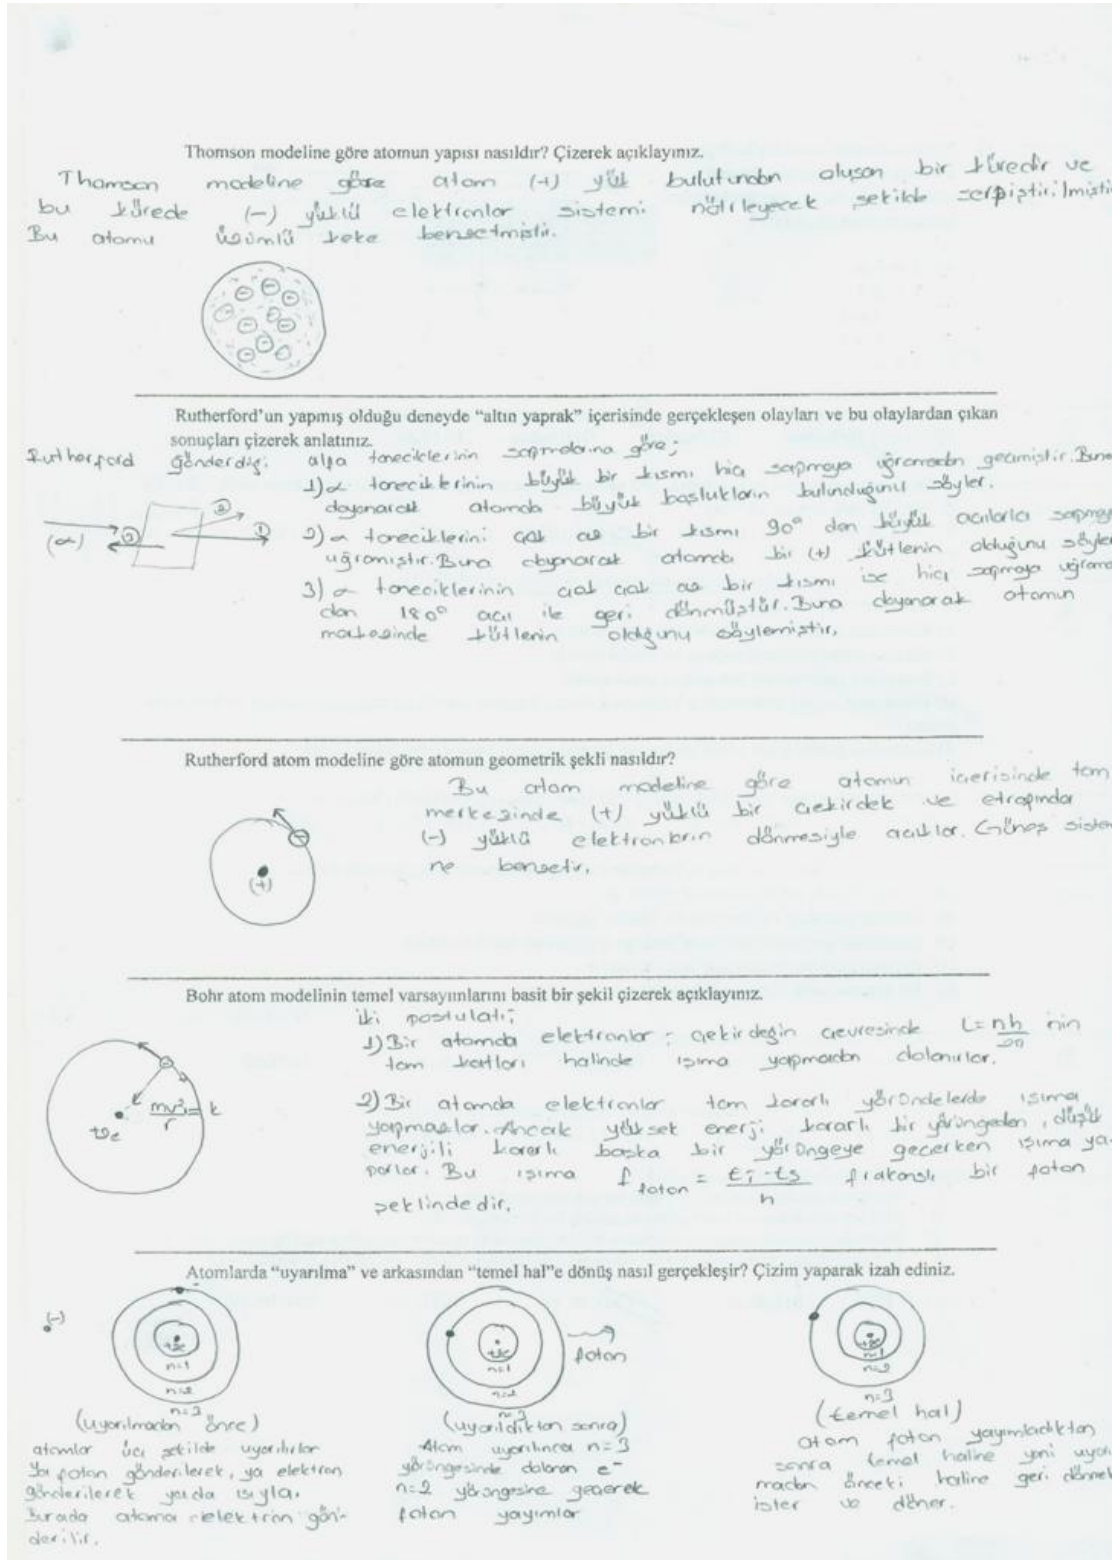 Thomson modeline göre atomun yapısı nasıldır? Çizerek açıklayınız.
Thomson modeline göre atom (+) yük bulutundan oluşan bir küredir ve
bu kürede (-) yüklü elektronlar sistemi nötrleyecek şekilde serpiştirilmiştir
Bu atomu üzümlü keke benzetmiştir.
Rutherford'un yapmış olduğu deneyde "altın yaprak" içerisinde gerçekleşen olayları ve bu olaylardan çıkan
sonuçları çizerek anlatınız.
Rutherford gönderdiği alfa taneciklerinin sapmalarına göre;
1) α taneciklerinin büyük bir kısmı hiç sapmaya uğramadan geçmiştir. Buna
dayanarak atomda büyük boşlukların bulunduğunu söyler.
(α) 3 2 1
2) α taneciklerini çok az bir kısmı 90° den büyük açılarla sapmaya
uğramıştır. Buna dayanarak atomda bir (+) kütlenin olduğunu söyler
3) α taneciklerinin çok çok az bir kısmı ise hiç sapmaya uğrama
dan 180° açı ile geri dönmüştür. Buna dayanarak atomun
merkezinde kütlenin olduğunu söylemiştir.
Rutherford atom modeline göre atomun geometrik şekli nasıldır?
Bu atom modeline göre atomun içerisinde tam
merkezinde (+) yüklü bir çekirdek ve etrafında
(-) yüklü elektronların dönmesiyle açıklar. Güneş sistem
ne benzetir.
(+)
Bohr atom modelinin temel varsayımlarını basit bir şekil çizerek açıklayınız.
iki postulatı;
1) Bir atomda elektronlar çekirdeğin çevresinde L=nh/2π nin
tam katları halinde ışıma yapmadan dolanırlar.
mv²/r = k
2) Bir atomda elektronlar tam kararlı yöründelerde ışıma
yapmazlar. Ancak yüksek enerji kararlı bir yörüngeden, düşük
enerjili kararlı başka bir yörüngeye geçerken ışıma ya-
parlar. Bu ışıma f foton = Ei-Es/h frakanslı bir foton
şeklindedir.
Atomlarda "uyarılma" ve arkasından "temel hal"e dönüş nasıl gerçekleşir? Çizim yaparak izah ediniz.
(-)
n=1 n=2 n=3
n=1 n=2 n=3 foton
n=1 n=2 n=3
(uyarılmadan önce)
atomlar üç şekilde uyarılırlar
Ya foton gönderilerek, ya elektron
gönderilerek yada ısıyla.
Burada atoma elektron gön-
derilir.
(uyarıldıktan sonra)
Atom uyarılınca n=3
yörüngesinde dolanan e⁻
n=2 yörüngesine geçerek
foton yayımlar
(temel hal)
atom foton yayımladıktan
sonra temel haline yani uyarıl
madan önceki haline geri dönmek
ister ve döner.